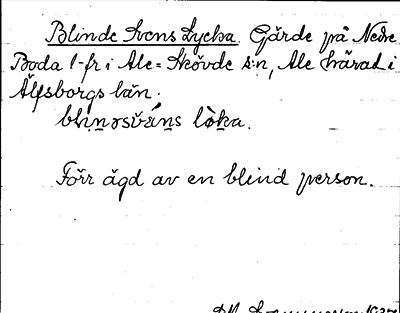 Blinde Svens Lycka. Gärde på Nedre
Boda 1-fr i Ale-Skövde s:n, Ale härad i
Älfsborgs län.
lòka.
Förr ägd av en blind person.